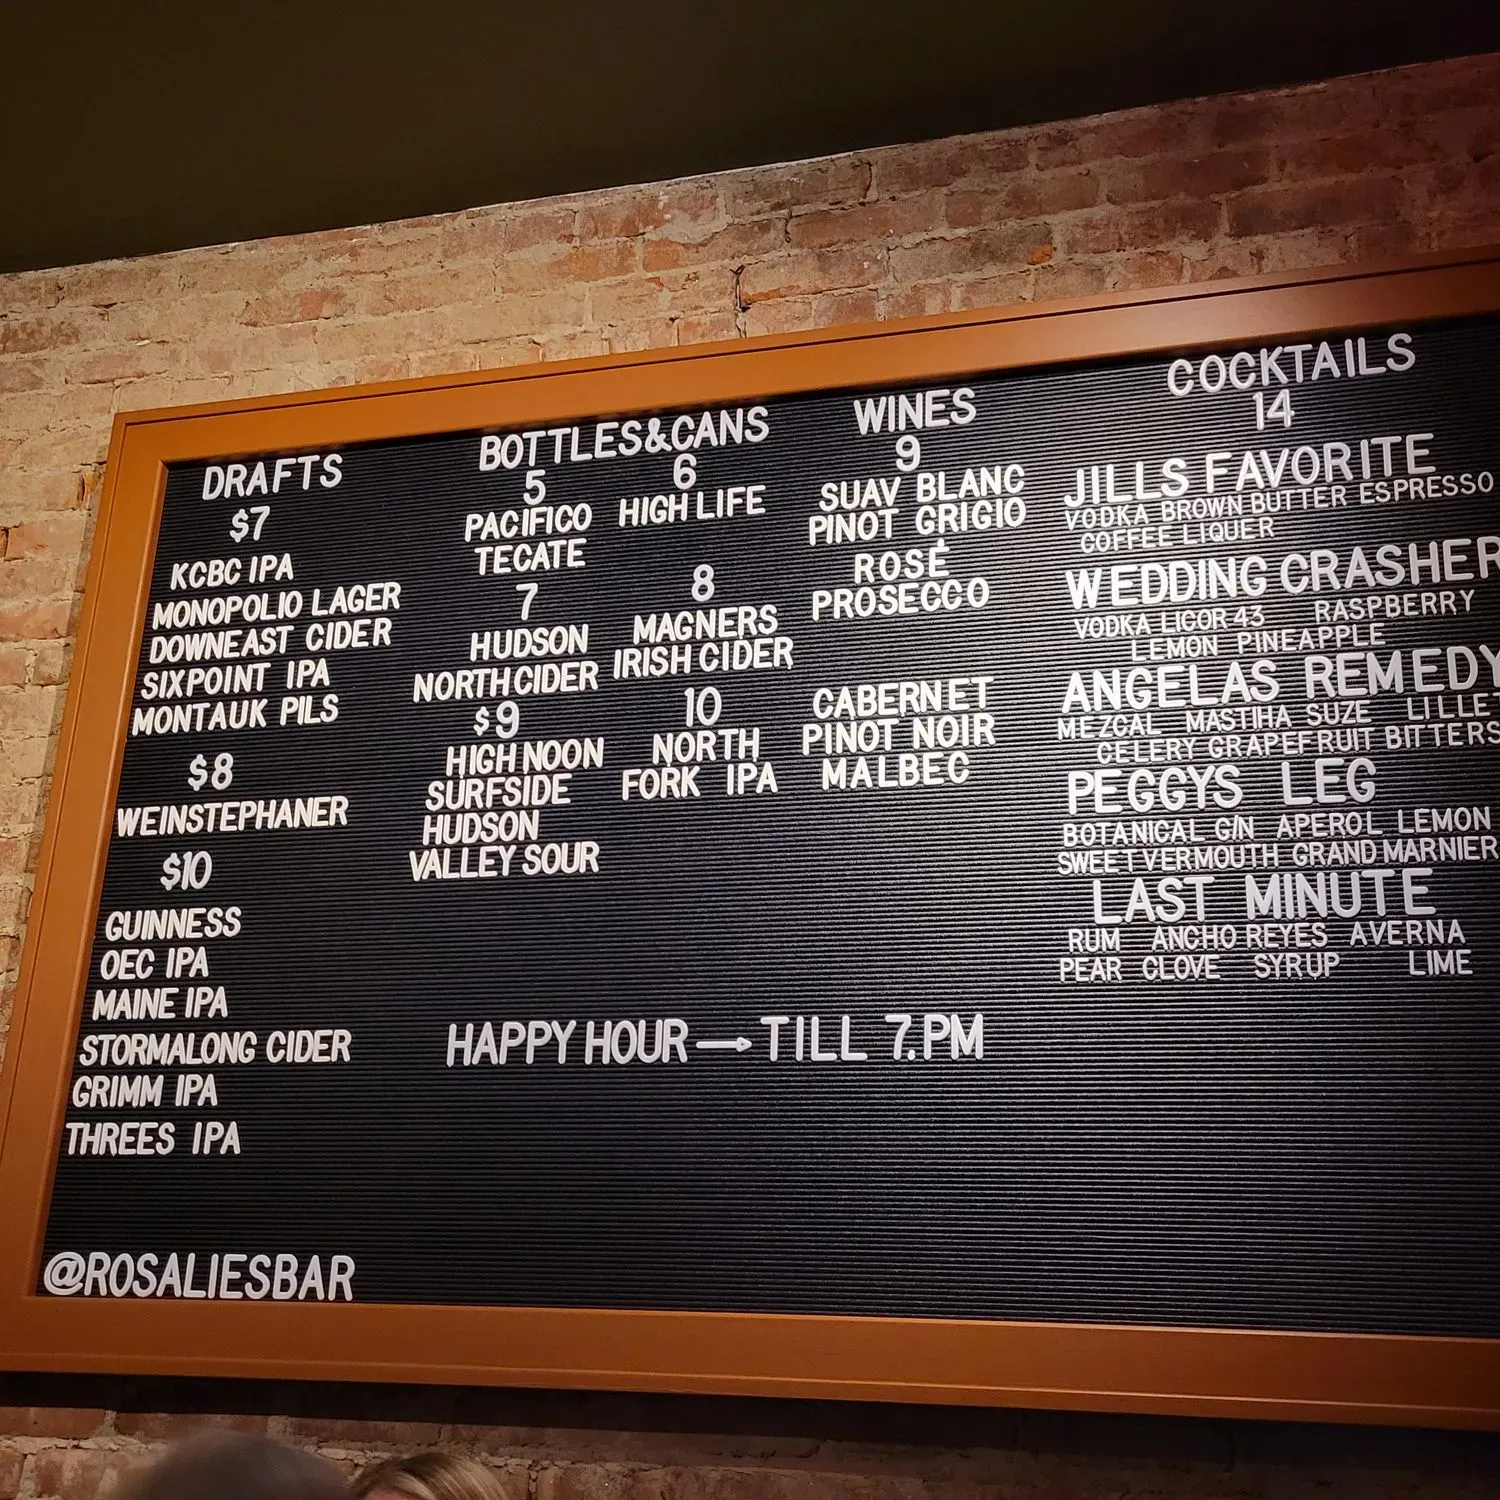 DRAFTS
$7
KCBC IPA
MONOPOLIO LAGER
DOWNEAST CIDER
SIXPOINT IPA
MONTAUK PILS
$8
WEINSTEPHANER
$10
GUINNESS
OEC IPA
MAINE IPA
STORMALONG CIDER
GRIMM IPA
THREES IPA
@ROSALIESBAR
BOTTLES&CANS
5
PACIFICO
TECATE
7
HUDSON
NORTH CIDER
$9
HIGH NOON
SURFSIDE
HUDSON
VALLEY SOUR
6
HIGH LIFE
8
MAGNERS
IRISH CIDER
10
NORTH
FORK IPA
HAPPY HOUR → TILL 7.PM
WINES
9
SUAV BLANC
PINOT GRIGIO
ROSÉ
PROSECCO
CABERNET
PINOT NOIR
MALBEC
COCKTAILS
14
JILLS FAVORITE
VODKA BROWN BUTTER ESPRESSO
COFFEE LIQUER
WEDDING CRASHER
VODKA LICOR 43 RASPBERRY
LEMON PINEAPPLE
ANGELAS REMEDY
MEZCAL MASTIHA SUZE LILLET
CELERY GRAPEFRUIT BITTERS
PEGGYS LEG
BOTANICAL GIN APEROL LEMON
SWEET VERMOUTH GRAND MARNIER
LAST MINUTE
RUM ANCHO REYES AVERNA
PEAR CLOVE SYRUP LIME